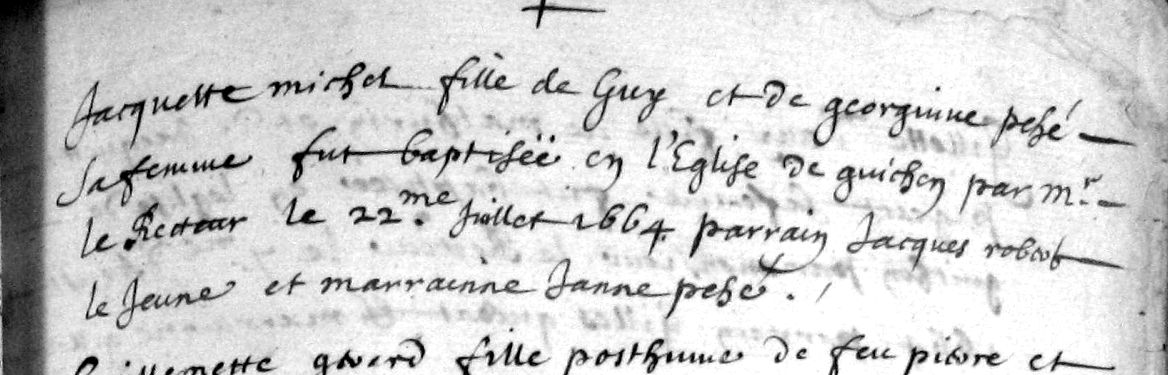 Jacquette michel fille de Guy et de georguine pesé
Sa femme fut baptiseë en l'Eglise de guichen par mr.
le Recteur le 22.me Juillet 1664. parrain Jacques robert
le Jeune et marrainne Janne pesé.
Guillemette gerard fille posthume de feu pierre et